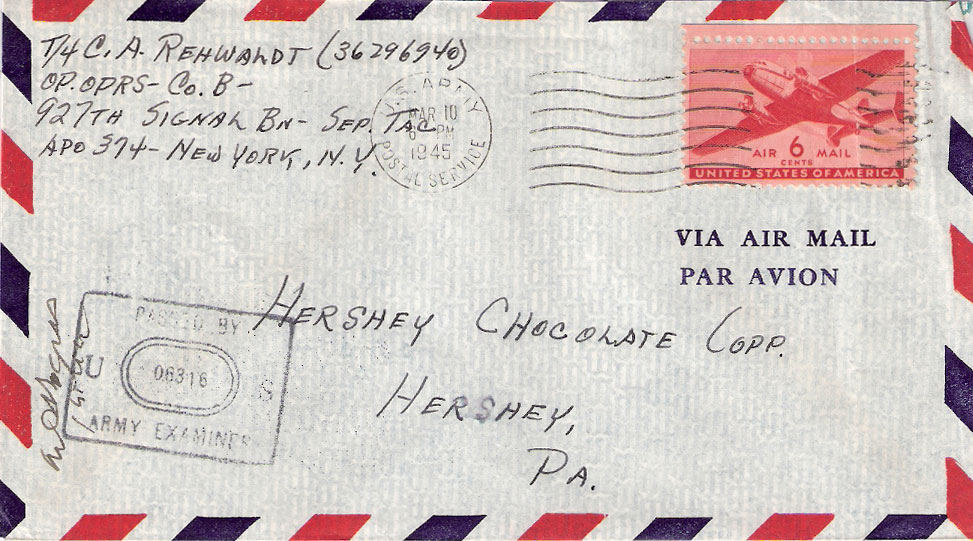 T/4 C. A. REHWALDT (36296940)
OP. OPRS - Co. B -
927TH SIGNAL BN - SEP. TAC
APO 374 - NEW YORK, N.Y.
U.S. ARMY
MAR 10
PM
1945
POSTAL SERVICE
AIR 6 MAIL
CENTS
UNITED STATES OF AMERICA
VIA AIR MAIL
PAR AVION
HERSHEY CHOCOLATE CORP.
HERSHEY,
PA.
PASSED BY
U 06316 S
ARMY EXAMINER